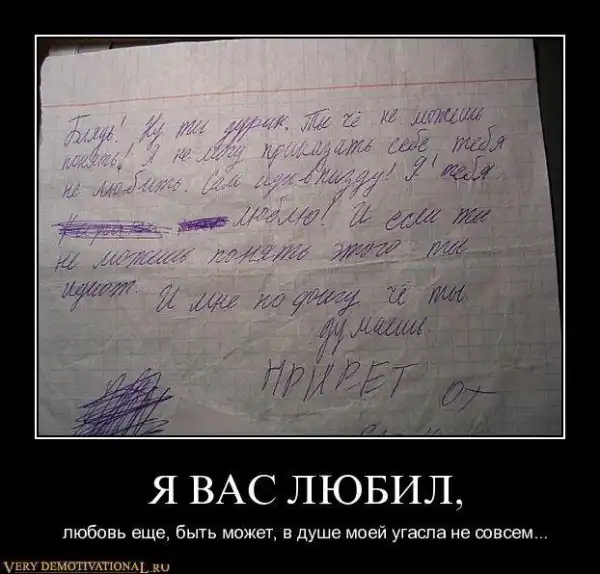 Блядь! Ну ты дурик. Ты чё не можешь
понять! Я не могу приказать себе тебя
не любить. Сам иди в пизду! Я тебя
люблю! И если ты
не можешь понять этого ты
идиот. И мне по фонгу чё ты
думаешь
ПРИВЕТ от
Я ВАС ЛЮБИЛ,
любовь еще, быть может, в душе моей угасла не совсем...
VERY DEMOTIVATIONAL.RU